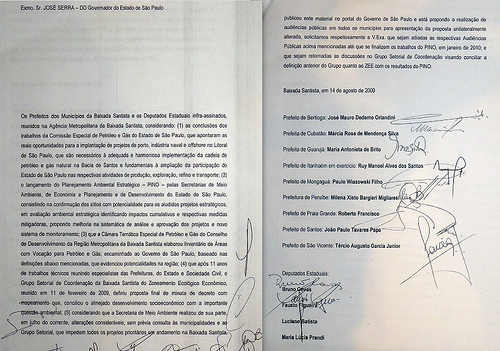 Exmo. Sr. JOSÉ SERRA – DD Governador do Estado de São Paulo
Os Prefeitos dos Municípios da Baixada Santista e os Deputados Estaduais infra-assinados,
reunidos na Agência Metropolitana da Baixada Santista, considerando: (1) as conclusões dos
trabalhos da Comissão Especial de Petróleo e Gás do Estado de São Paulo, que apontaram as
reais oportunidades para a implantação de projetos de porto, indústria naval e offshore no Litoral
de São Paulo, que são necessários à adequada e harmoniosa implementação da cadeia de
petróleo e gás natural na Bacia de Santos e fundamentais à ampliação da participação do
Estado de São Paulo nas respectivas atividades de produção, exploração, refino e transporte; (2)
o lançamento do Planejamento Ambiental Estratégico – PINO – pelas Secretarias de Meio
Ambiente, de Economia e Planejamento e de Desenvolvimento do Estado de São Paulo,
consistindo na confirmação dos sítios com potencialidade para os aludidos projetos estratégicos,
em avaliação ambiental estratégica identificando impactos cumulativos e respectivas medidas
mitigadoras, propondo melhoria na sistemática de análise e aprovação dos projetos e novo
sistema de monitoramento; (3) que a Câmara Temática Especial de Petróleo e Gás do Conselho
de Desenvolvimento da Região Metropolitana da Baixada Santista elaborou Inventário de Áreas
com Vocação para Petróleo e Gás, encaminhado ao Governo de São Paulo, baseado nas
definições abaixo mencionadas, que evidenciou potencialidades na região; (4) que após 11 anos
de trabalhos técnicos reunindo especialistas das Prefeituras, do Estado e Sociedade Civil, o
Grupo Setorial de Coordenação da Baixada Santista do Zoneamento Ecológico Econômico,
reunido em 11 de fevereiro de 2009, definiu proposta final de minuta de decreto com
mapeamento que, conciliou o almejado desenvolvimento socioeconômico com a importante
questão ambiental; (5) considerando que a Secretaria de Meio Ambiente realizou de sua parte,
em julho do corrente, alterações consideráveis, sem prévia consulta às municipalidades e ao
Grupo Setorial, que impedem todos os projetos prioritários em andamento na Baixada Santista,
publicou este material no portal do Governo de São Paulo e está propondo a realização de
audiências públicas em todos os municípios para apresentação da proposta unilateralmente
alterada, solicitamos respeitosamente a V.Exa. que sejam adiadas as respectivas Audiências
Públicas acima mencionadas até que se finalizem os trabalhos do PINO, em janeiro de 2010; e
que sejam retomadas as discussões no Grupo Setorial de Coordenação visando conciliar a
definição anterior do Grupo quanto ao ZEE com os resultados do PINO.
Baixada Santista, em 14 de agosto de 2009
Prefeito de Bertioga: José Mauro Dedemo Orlandini
Prefeito de Cubatão: Márcia Rosa de Mendonça Silva
Prefeito de Guarujá: Maria Antonieta de Brito
Prefeito de Itanhaém em exercício: Ruy Manoel Alves dos Santos
Prefeito de Mongaguá: Paulo Wiazowski Filho
Prefeitura de Peruíbe: Milena Xisto Bargieri Migliaresi
Prefeito de Praia Grande: Roberto Francisco
Prefeito de Santos: João Paulo Tavares Papa
Prefeito de São Vicente: Tércio Augusto Garcia Junior
Deputados Estaduais:
Bruno Covas
Fausto Figueira
Luciano Batista
Maria Lúcia Prandi